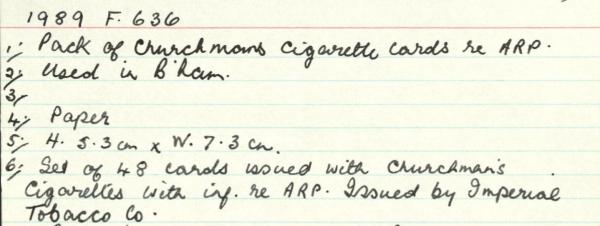 1989 F. 636
1; Pack of Churchmans Cigarette Cards re ARP.
2; Used in B'ham.
3;
4; Paper
5; H. 5.3 cm x W. 7.3 cm.
6; Set of 48 cards issued with Churchman's
Cigarettes with inf. re ARP. Issued by Imperial
Tobacco Co.